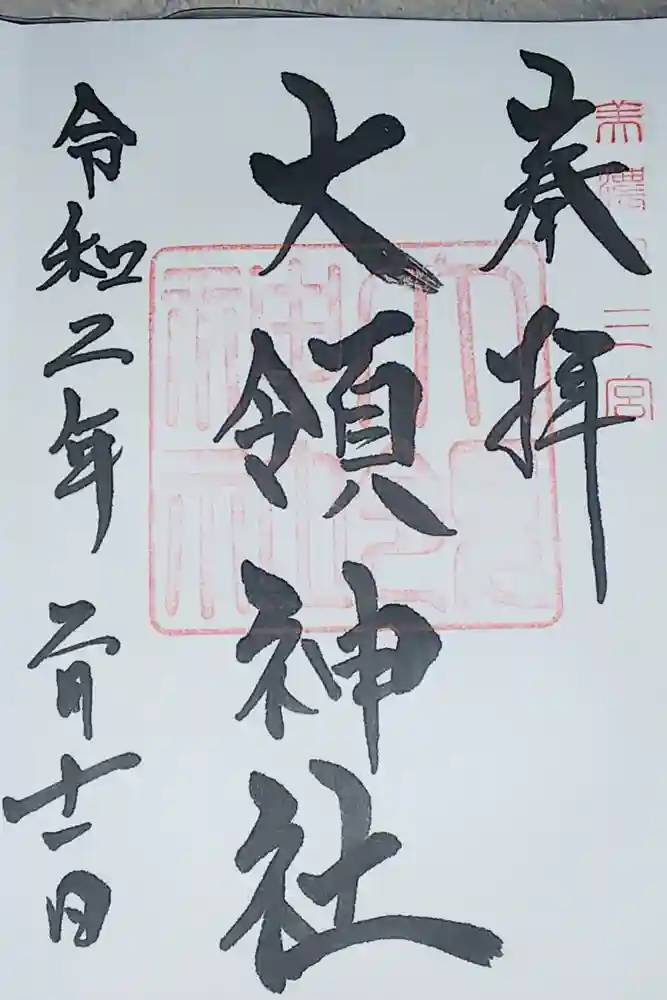 奉拝
美濃国三宮
大領神社
令和二年二月十一日